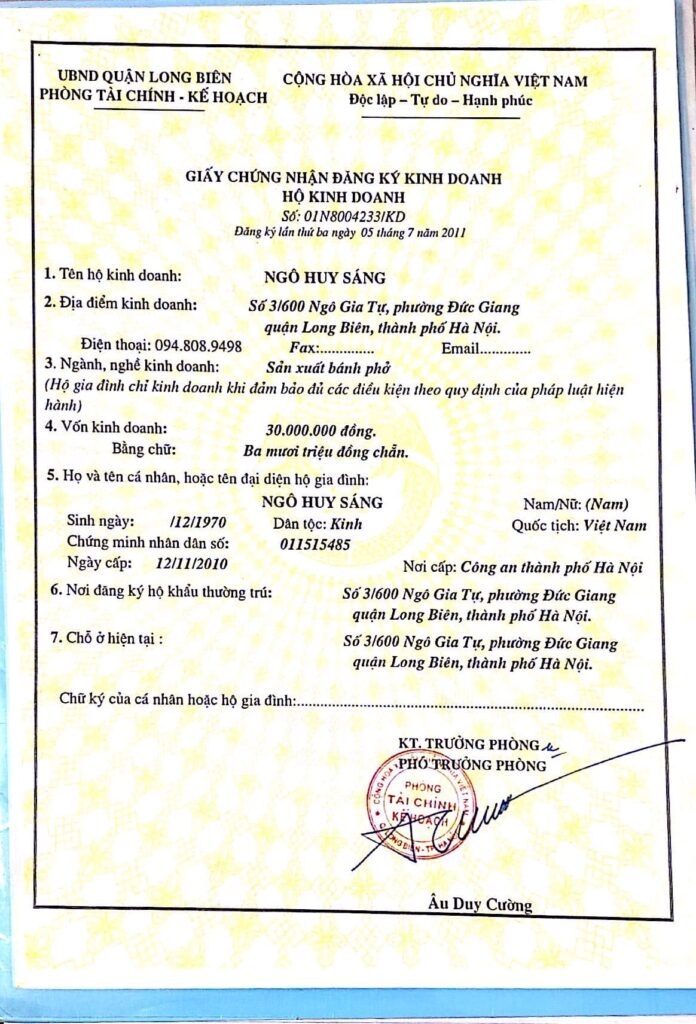 UBND QUẬN LONG BIÊN
PHÒNG TÀI CHÍNH - KẾ HOẠCH
CỘNG HÒA XÃ HỘI CHỦ NGHĨA VIỆT NAM
Độc lập – Tự do – Hạnh phúc
GIẤY CHỨNG NHẬN ĐĂNG KÝ KINH DOANH
HỘ KINH DOANH
Số: 01N8004233/KD
Đăng ký lần thứ ba ngày 05 tháng 7 năm 2011
1. Tên hộ kinh doanh: NGÔ HUY SÁNG
2. Địa điểm kinh doanh: Số 3/600 Ngô Gia Tự, phường Đức Giang
quận Long Biên, thành phố Hà Nội.
Điện thoại: 094.808.9498 Fax:.............. Email.............
3. Ngành, nghề kinh doanh: Sản xuất bánh phở
(Hộ gia đình chỉ kinh doanh khi đảm bảo đủ các điều kiện theo quy định của pháp luật hiện
hành)
4. Vốn kinh doanh: 30.000.000 đồng.
Bằng chữ: Ba mươi triệu đồng chẵn.
5. Họ và tên cá nhân, hoặc tên đại diện hộ gia đình:
NGÔ HUY SÁNG Nam/Nữ: (Nam)
Sinh ngày: /12/1970 Dân tộc: Kinh Quốc tịch: Việt Nam
Chứng minh nhân dân số: 011515485
Ngày cấp: 12/11/2010 Nơi cấp: Công an thành phố Hà Nội
6. Nơi đăng ký hộ khẩu thường trú: Số 3/600 Ngô Gia Tự, phường Đức Giang
quận Long Biên, thành phố Hà Nội.
7. Chỗ ở hiện tại : Số 3/600 Ngô Gia Tự, phường Đức Giang
quận Long Biên, thành phố Hà Nội.
Chữ ký của cá nhân hoặc hộ gia đình:......................................................................
KT. TRƯỞNG PHÒNG
PHÓ TRƯỞNG PHÒNG
PHÒNG
TÀI CHÍNH
KẾ HOẠCH
Âu Duy Cường